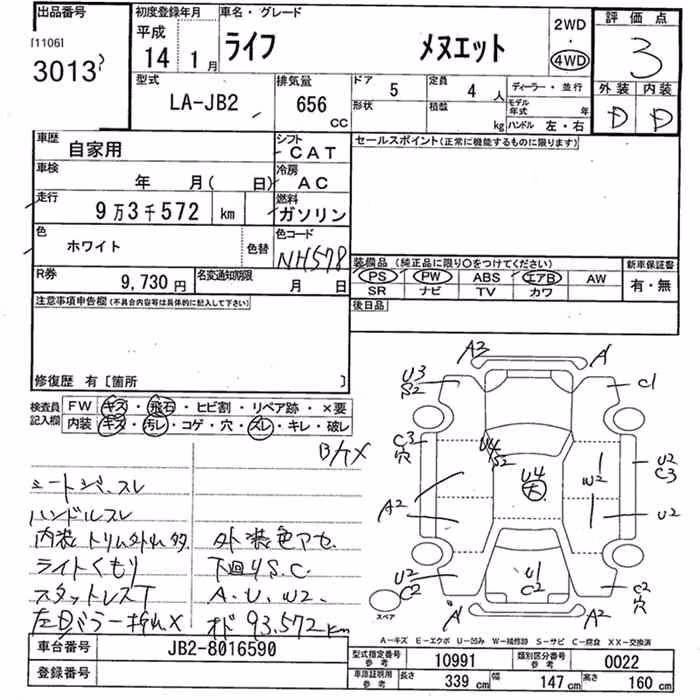 出品番号
[1106]
3013
初度登録年月
平成
14 1月
車名・グレード
ライフ メヌエット
2WD
4WD
評価点
3
外装 内装
D D
型式
LA-JB2
排気量
656 CC
ドア 5
定員 4 人
形状
積載 kg
ディーラー・並行
モデル年式 年
ハンドル 左・右
車歴 自家用
シフト CAT
セールスポイント(正常に機能するものに限ります)
車検 年 月( 日)
冷房 AC
走行 9万3千572 km
燃料 ガソリン
色 ホワイト
色替
色コード NH578
装備品(純正品に限り○をつけてください)
新車保証書
PS PW ABS エアB AW
有・無
SR ナビ TV カワ
R券 9,730円
名変通知期限 月 日
後日品
注意事項申告欄(不具合内容等は具体的に記入して下さい)
修復歴 有[箇所 ]
検査員記入欄
FW キズ・飛石・ヒビ割・リペア跡・×要
内装 キズ・汚レ・コゲ・穴・ズレ・キレ・破レ
シートジバスレ
ハンドルスレ
内装トリム外れ多 外装色アセ
ライトくもり 下廻りS.C.
スタットレスT A.U.W2.
左Dミラー折れX オド 93,572km
A3 A
U3
S2
C1
C3
穴
U4
S2
U4
大
W2
U2
C3
A2
U2
U2
C2
U1
C2
C2
穴
A A2
スペア
A-キズ E-エクボ U-凹み W-補修跡 S-サビ C-腐食 XX-交換済
車台番号 JB2-8016590
登録番号
型式指定番号 参考 10991
類別区分番号 参考 0022
車庫証明用 参考 長さ 339 cm 幅 147 cm 高さ 160 cm